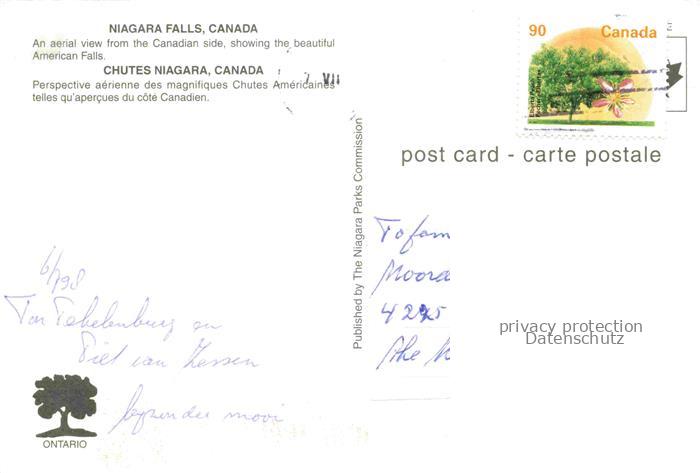 NIAGARA FALLS, CANADA
An aerial view from the Canadian side, showing the beautiful
American Falls.
CHUTES NIAGARA, CANADA
Perspective aérienne des magnifiques Chutes Américaines
telles qu'aperçues du côté Canadien.
VII
90
Canada
post card - carte postale
Published by The Niagara Parks Commission
To fam
Moord
privacy protection
Datenschutz
6/7 98
Ton en
Piet van
mooi
ONTARIO